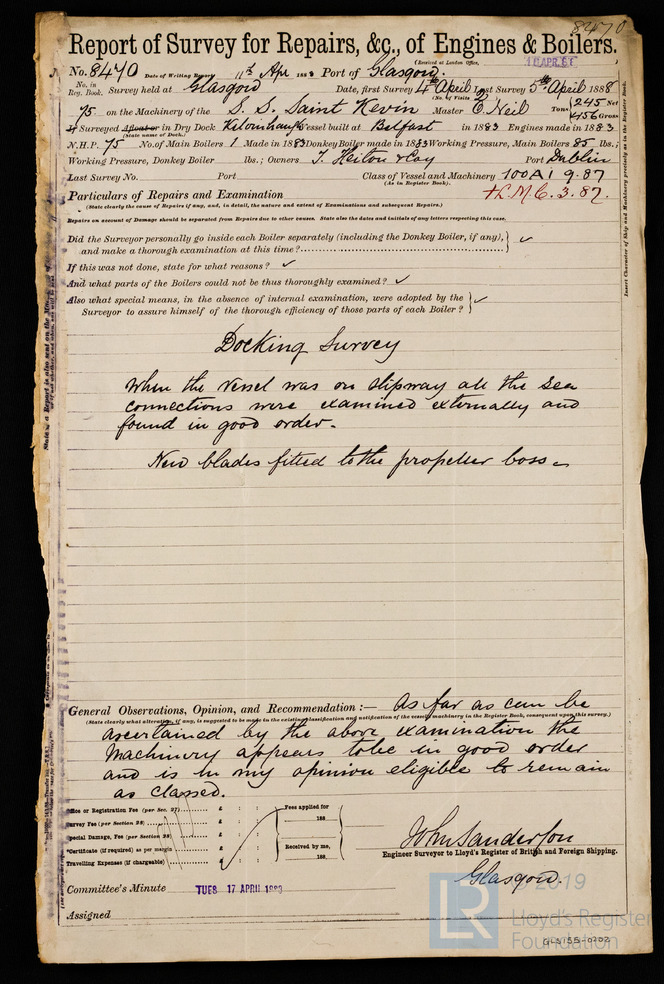 8470
Report of Survey for Repairs, &c., of Engines & Boilers.
(Received at London Office,
No. 8470 Date of Writing Report 11th Apr 1888 Port of Glasgow.
No. in Reg. Book. Survey held at Glasgow Date, first Survey 4th April Last Survey 5th April 1888
(No. of Visits 2)
75 on the Machinery of the S. S. Saint Kevin Master E. Neil Tons 245 Net 456 Gross
If Surveyed Afloat or in Dry Dock Kelvinhaugh Vessel built at Belfast in 1883 Engines made in 1883
(State name of Dock.)
N.H.P. 75 No. of Main Boilers 1 Made in 1883 Donkey Boiler made in 1883 Working Pressure, Main Boilers 85 lbs.;
Working Pressure, Donkey Boiler lbs.; Owners T. Heiton & Coy Port Dublin
Last Survey No. Port Class of Vessel and Machinery 100A1 9.87
(As in Register Book).
+L.M.C. 3.87.
Particulars of Repairs and Examination
(State clearly the cause of Repairs if any, and, in detail, the nature and extent of Examinations and subsequent Repairs.)
Repairs on account of Damage should be separated from Repairs due to other causes. State also the dates and initials of any letters respecting this case.
Did the Surveyor personally go inside each Boiler separately (including the Donkey Boiler, if any),
and make a thorough examination at this time? ✓
If this was not done, state for what reasons? ✓
And what parts of the Boilers could not be thus thoroughly examined? ✓
Also what special means, in the absence of internal examination, were adopted by the
Surveyor to assure himself of the thorough efficiency of those parts of each Boiler? ✓
Docking Survey
When the vessel was on slipway all the sea
connections were examined externally and
found in good order.
New blades fitted to the propeller boss.
General Observations, Opinion, and Recommendation :— As far as can be
(State clearly what alteration, if any, is suggested to be made in the existing classification and notification of the vessel's machinery in the Register Book, consequent upon this survey.)
ascertained by the above examination the
Machinery appears to be in good order
and is in my opinion eligible to remain
as classed.
Office or Registration Fee (per Sec. 27) £ : : Fees applied for
Survey Fee (per Section 28) £ : : 188
Special Damage, Fee (per Section 28) £ : :
*Certificate (if required) as per margin £ : : Received by me,
Travelling Expenses (if chargeable) £ : : 188
John Sanderson
Engineer Surveyor to Lloyd's Register of British and Foreign Shipping.
Glasgow.
Committee's Minute TUES 17 APRIL 1888
Assigned
LR © 2019
Lloyd's Register
Foundation
GLS155-0202